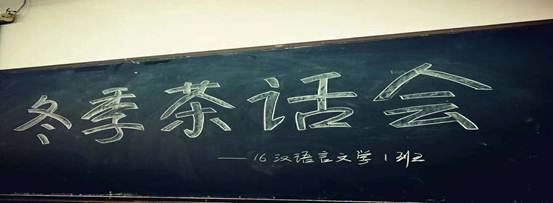 冬季茶话会
——16汉语言文学1班